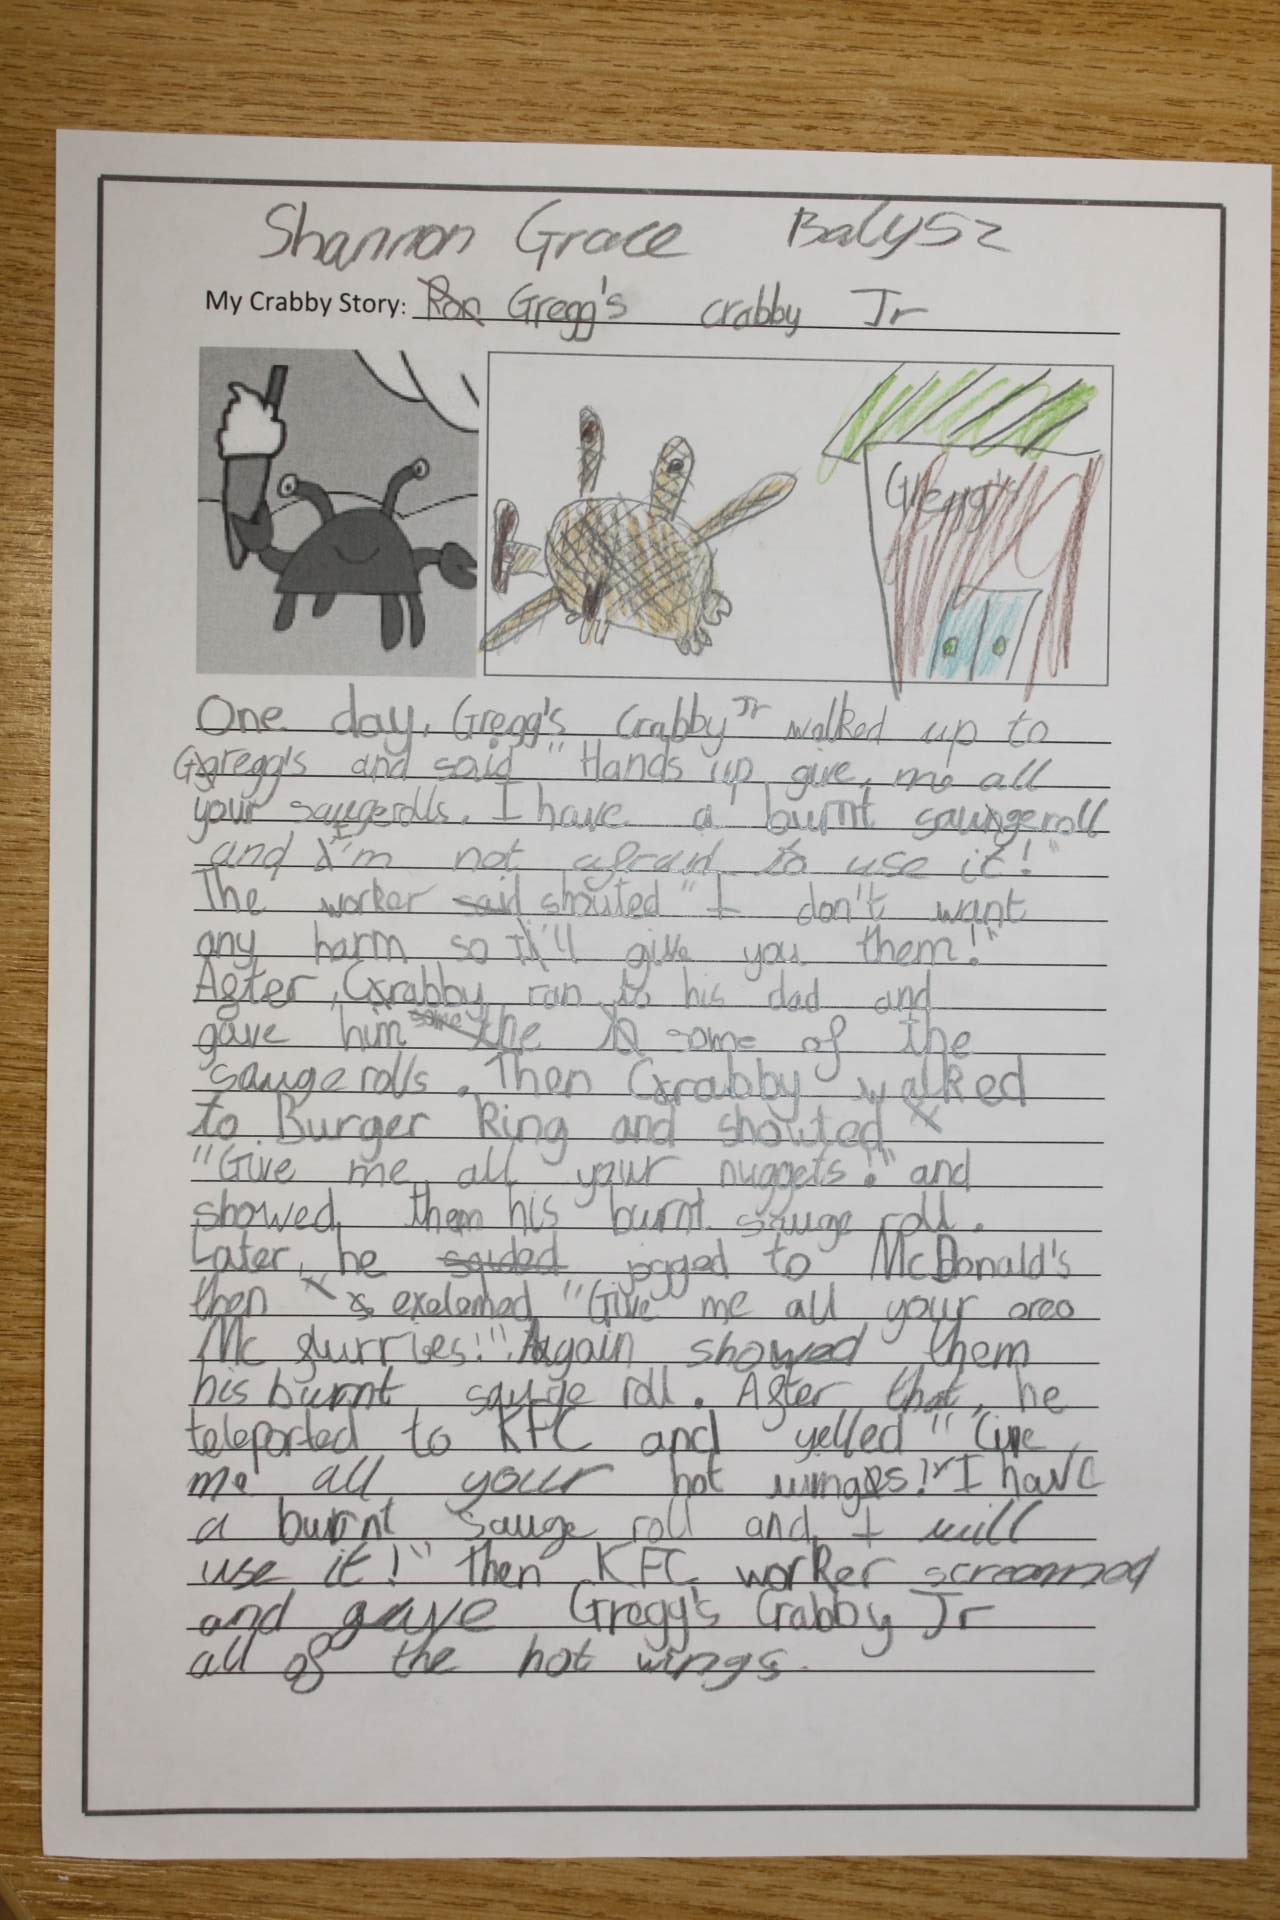 Shannon Grace Balysz
My Crabby Story: Ron Gregg's crabby Jr
Gregg's
One day, Gregg's Crabby Jr walked up to
Gregg's and said "Hands up give me all
your saugerolls. I have a burnt saugeroll
and I'm not afraid to use it!"
The worker said shouted "I don't want
any harm so I'll give you them!"
After, Crabby ran to his dad and
gave him some the some of the
sauge rolls. Then Crabby walked
to Burger King and shouted
"Give me all your nuggets!" and
showed them his burnt sauge roll.
Later, he saided jogged to McDonald's
then exclamed "Give me all your oreo
Mc flurries!" Again showed them
his burnt sauge roll. After that, he
teleported to KFC and yelled "Give
me all your hot wings! I have
a burnt sauge roll and I will
use it!" Then KFC worker screamed
and gave Gregg's Crabby Jr
all of the hot wings.